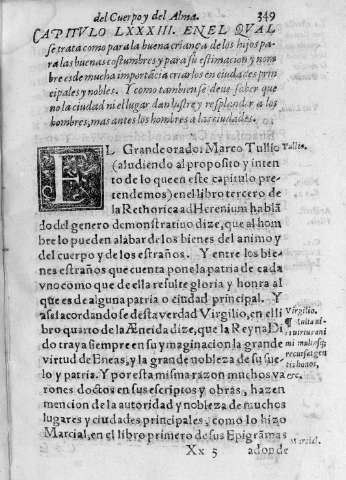 del Cuerpo y del Alma. 349
CAPITVLO LXXXIII. EN EL QVAL
se trata como para la buena criança de los hijos pa-
ra las buenas costumbres y para su estimacion y nom
bre es de mucha importãcia criarlos en ciudades prin
cipales y nobles. Y como tambien se deue saber que
no la ciudad ni el lugar dan lustre y resplendor a los
hombres, mas antes los hombres a las ciudades.
EL Grande orador Marco Tullio
Tullio.
(aludiendo al proposito y inten
to de lo que en este capitulo pre-
tendemos) en el libro tercero de
la Rethorica ad Herenium hablã
do del genero demonstratiuo dize, que al hom
bre lo pueden alabar de los bienes del animo y
del cuerpo y de los estraños. Y entre los bie-
nes estraños que cuenta pone la patria de cada
vno como que de ella resulte gloria y honra al
que es de alguna patria o ciudad principal. Y
assi acordando se desta verdad Virgilio, en el li
Virgilio.
bro quarto de la Æneida dize, que la Reyna Di
do traya siempre en su ymaginacion la grande
virtud de Eneas, y la grande nobleza de su sue-
lo y patria. Y por esta misma razon muchos va
rones doctos en sus escriptos y obras, hazen
mencion de la autoridad y nobleza de muchos
lugares y ciudades principales, como lo hizo
Marcial, en el libro primero de sus Epigrãmas
Marcial.
Xx 5 adonde